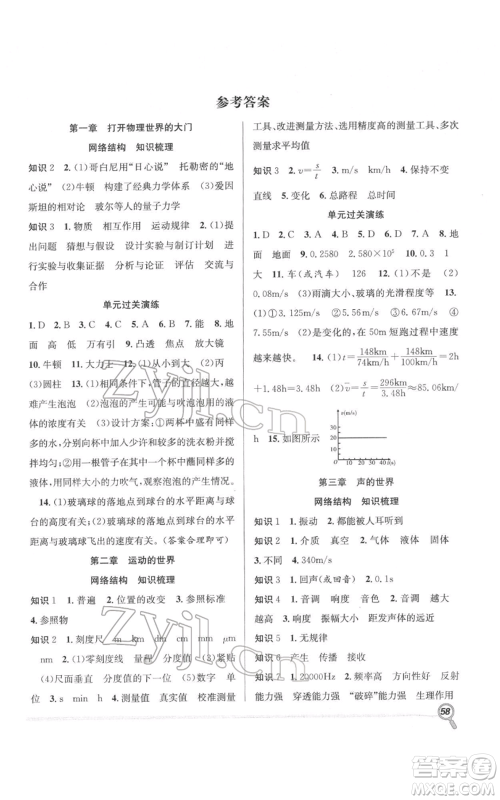 参考答案
第一章 打开物理世界的大门
网络结构 知识梳理
知识2 2.(1)哥白尼用“日心说” 托勒密的“地
心说” (2)牛顿 构建了经典力学体系 (3)爱因
斯坦的相对论 玻尔等人的量子力学
知识3 1.物质 相互作用 运动规律 2.(1)提
出问题 猜想与假设 设计实验与制订计划 进行
实验与收集证据 分析与论证 评估 交流与合作
(2)实验
单元过关演练
1.D 2.B 3.C 4.B 5.D 6.D 7.A 8.
地 高 低 万有引力 9.凸透 焦点 放大镜
10.牛顿 11.大力士 12.(1)从小到大 (2)丙
(3)圆柱 13.(1)相同条件下,管子的直径越大,越
难产生泡泡 (2)泡泡的产生可能与吹泡泡用的液
体的浓度有关 (3)①在两个相同杯子中倒同样多
的水,分别向杯中加不同多少的洗衣粉并搅拌,搅
拌均匀;②用同一管子在两个杯中蘸同样多的液
体;③用同样大小的力吹气,观察现象
14.(1)玻璃球的落地点到球台的水平距离与球
台的高度有关 (2)玻璃球的落地点到球台的水平
距离与球台的高度有关。(答案合理即可)
第二章 运动的世界
网络结构 知识梳理
知识1 1.普遍 2.位置的改变 3.参照标准
4.参照物
知识2 1.刻度尺 m dm cm mm μm
nm 2.(1)零刻度线 量程 分度值 (2)③紧贴
(4)尺面 (5)分度值 分度值的下一位 (6)数字
单位 3.s min h 4.测量值 真实值 校准测量
工具、改进测量方法、选用精度高的测量工具、多次
测量求平均值
知识3 2.v=s/t 3.m/s km/h 4.保持不变
直线 5.变化 6.总路程 总时间
单元过关演练
1.D 2.D 3.C 4.B 5.C 6.D 7.A 8.地
面 地面 9.0.2580 2.580×10⁵ 10.0.3 1
大 11.车(或汽车) 126 12.(1)> (2)
0.08m/s (3)雨滴大小、玻璃的光滑程度等
13.(1)①2.5m/s ②6.25m/s ③8.0m/s ④
7.55m/s (2)变化的,在50m短跑过程中速度越
来越快。 14.(1)t=148km/74km/h+148km/100km/h=2h
+1.48h=3.48h (2)v=s/t=296km/3.48h≈85.06km/
h 15.如图所示
v(m/s)
30
20
10
0 10 20 30 40 t(s)
第三章 声的世界
网络结构 知识梳理
知识1 1.振动 2.都能被人耳听到
知识2 1.介质 真空 2.气体 液体 固体
3.不同 4.340m/s
知识3 1.回声(或回音) 2.吸收
知识4 1.音调 响度 音色 2.音调 频率
3.响度 振幅大小 距发声体的远近
知识5 1.无规律
知识6 1.产生 传播 接收
知识7 1.20000Hz 2.声音高 方向好 反射
能力强 穿透能力强 “破碎”能力强 生理作用
58